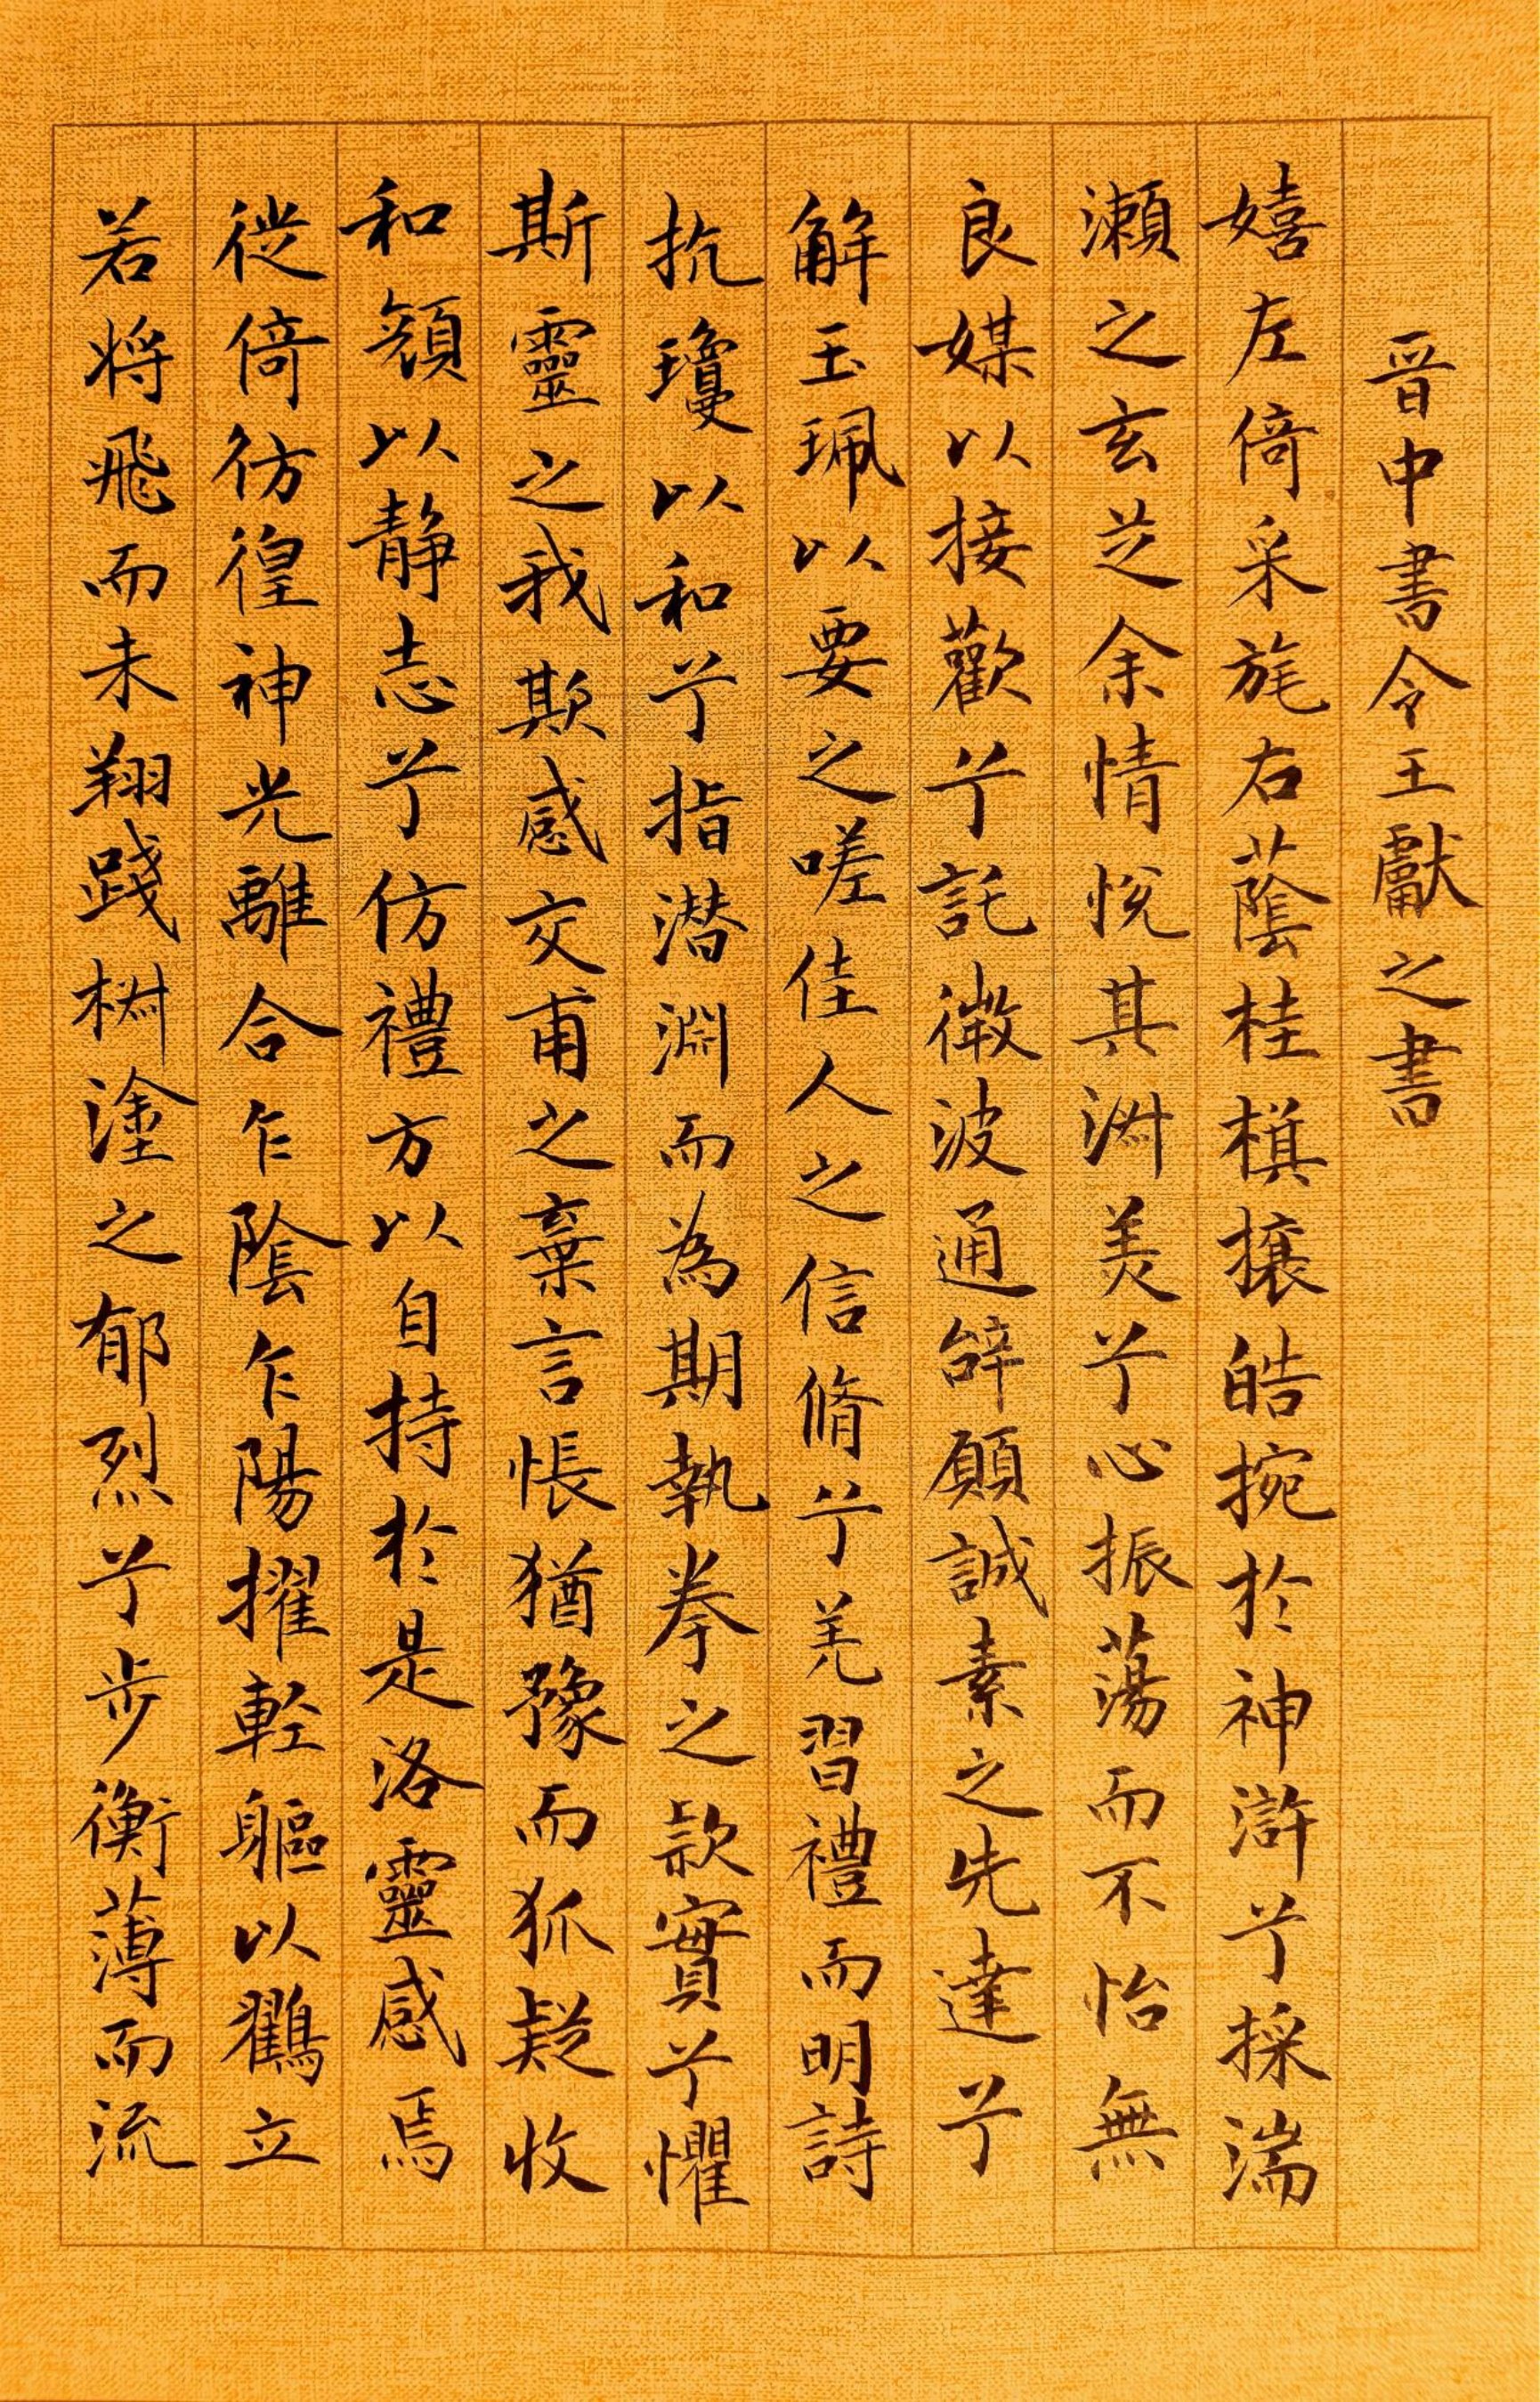 晉中書令王獻之書
嬉左倚采旄右蔭桂棋攘皓捥於神滸兮採湍
瀬之玄芝余情悅其淋美兮心振蕩而不怡無
良媒以接歡兮託微波通辝願誠素之先達兮
解玉珮以要之嗟佳人之信脩兮羌習禮而明詩
抗瓊以和兮指潜淵而為期執拳之款實兮懼
斯靈之我欺感交甫之棄言悵猶豫而狐疑收
和顏以静志兮仿禮方以自持於是洛靈感焉
徙倚彷徨神光離合乍陰乍陽擢輕軀以鸛立
若将飛而未翔踐椒塗之郁烈兮步衡薄而流